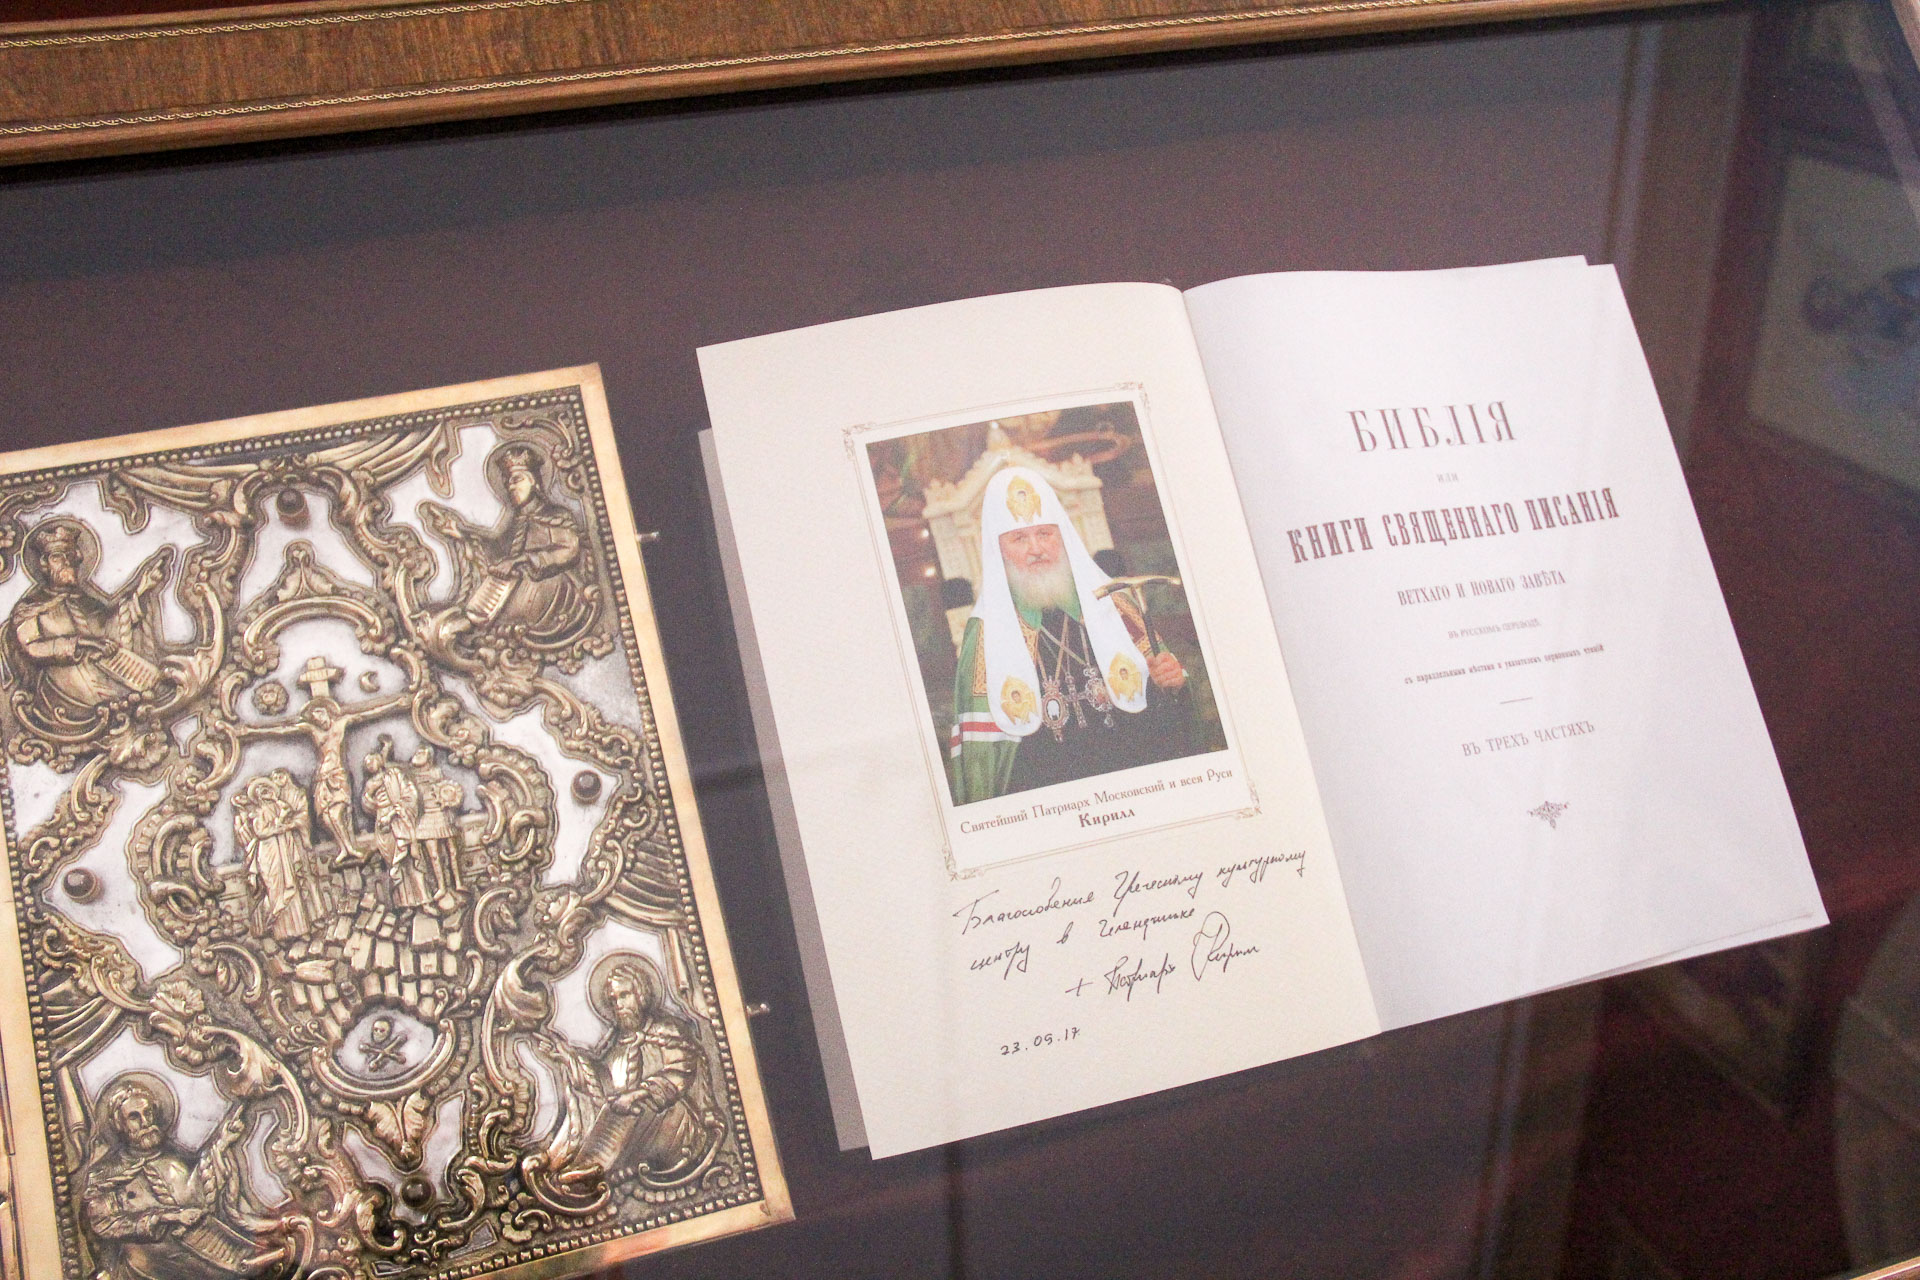 Святейший Патриарх Московский и всея Руси
Кирилл
Благословение Греческому культурному
центру в Геленджике
+ Патриарх Кирилл
23.09.17
БИБЛІЯ
ИЛИ
КНИГИ СВЯЩЕННАГО ПИСАНІЯ
ВЕТХАГО И НОВАГО ЗАВѢТА
ВЪ РУССКОМЪ ПЕРЕВОДѢ
съ параллельными мѣстами и указателемъ церковныхъ чтеній
ВЪ ТРЕХЪ ЧАСТЯХЪ